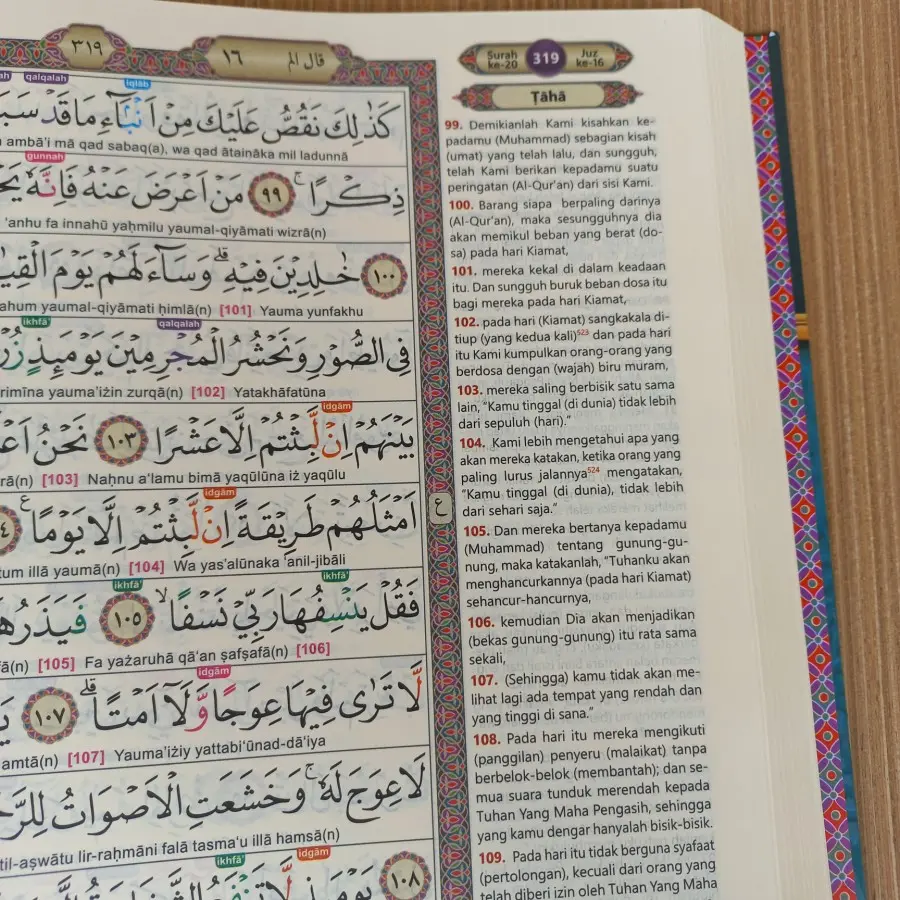 ٣١٩
١٦
قال الم
Surah
ke-20
319
Juz
ke-16
Ṭāhā
qalqalah
iqlāb
كَذٰلِكَ نَقُصُّ عَلَيْكَ مِنْ اَنْۢبَاۤءِ مَا قَدْ
ambā'i mā qad sabaq(a), wa qad ātaināka mil ladunnā
gunnah
ذِكْرًا ۚ ٩٩ مَنْ اَعْرَضَ عَنْهُ فَاِنَّهٗ
'anhu fa innahū yaḥmilu yaumal-qiyāmati wizrā(n)
١٠٠ خٰلِدِيْنَ فِيْهِ ۗ وَسَاۤءَ لَهُمْ يَوْمَ
ahum yaumal-qiyāmati ḥimlā(n) [101] Yauma yunfakhu
ikhfā'
qalqalah
فِى الصُّوْرِ وَنَحْشُرُ الْمُجْرِمِيْنَ يَوْمَىِٕذٍ
rimīna yauma'iżin zurqā(n) [102] Yatakhāfatūna
idgām
بَيْنَهُمْ اِنْ لَّبِثْتُمْ اِلَّا عَشْرًا ١٠٣ نَحْنُ
rā(n) [103] Naḥnu a'lamu bimā yaqūlūna iż yaqūlu
idgām
اَمْثَلُهُمْ طَرِيْقَةً اِنْ لَّبِثْتُمْ اِلَّا يَوْمًا ࣖ
ع
tum illā yaumā(n) [104] Wa yas'alūnaka 'anil-jibāli
ikhfā'
ikhfā'
فَقُلْ يَنْسِفُهَا رَبِّيْ نَسْفًا ۙ ١٠٥
fā(n) [105] Fa yażaruhā qā'an ṣafṣafā(n) [106]
idgām
لَّا تَرٰى فِيْهَا عِوَجًا وَّلَآ اَمْتًا ۗ ١٠٧
amtā(n) [107] Yauma'iżiy yattabi'ūnad-dā'iya
لَا عِوَجَ لَهٗ ۚ وَخَشَعَتِ الْاَصْوَاتُ
til-aṣwātu lir-raḥmāni falā tasma'u illā hamsā(n)
ikhfā'
idgām
١٠٨ يَوْمَىِٕذٍ لَّا تَنْفَعُ
99. Demikianlah Kami kisahkan ke-
padamu (Muhammad) sebagian kisah
(umat) yang telah lalu, dan sungguh,
telah Kami berikan kepadamu suatu
peringatan (Al-Qur'an) dari sisi Kami.
100. Barang siapa berpaling darinya
(Al-Qur'an), maka sesungguhnya dia
akan memikul beban yang berat (do-
sa) pada hari Kiamat,
101. mereka kekal di dalam keadaan
itu. Dan sungguh buruk beban dosa itu
bagi mereka pada hari Kiamat,
102. pada hari (Kiamat) sangkakala di-
tiup (yang kedua kali)523 dan pada hari
itu Kami kumpulkan orang-orang yang
berdosa dengan (wajah) biru muram,
103. mereka saling berbisik satu sama
lain, "Kamu tinggal (di dunia) tidak lebih
dari sepuluh (hari)."
104. Kami lebih mengetahui apa yang
akan mereka katakan, ketika orang yang
paling lurus jalannya524 mengatakan,
"Kamu tinggal (di dunia), tidak lebih
dari sehari saja."
105. Dan mereka bertanya kepadamu
(Muhammad) tentang gunung-gu-
nung, maka katakanlah, "Tuhanku akan
menghancurkannya (pada hari Kiamat)
sehancur-hancurnya,
106. kemudian Dia akan menjadikan
(bekas gunung-gunung) itu rata sama
sekali,
107. (Sehingga) kamu tidak akan me-
lihat lagi ada tempat yang rendah dan
yang tinggi di sana."
108. Pada hari itu mereka mengikuti
(panggilan) penyeru (malaikat) tanpa
berbelok-belok (membantah); dan se-
mua suara tunduk merendah kepada
Tuhan Yang Maha Pengasih, sehingga
yang kamu dengar hanyalah bisik-bisik.
109. Pada hari itu tidak berguna syafaat
(pertolongan), kecuali dari orang yang
telah diberi izin oleh Tuhan Yang Maha